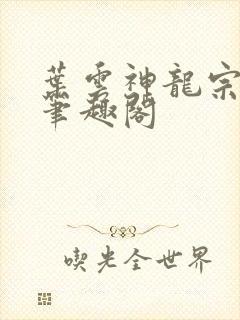 葉雲神龍宗
筆趣閣
喫光全世界